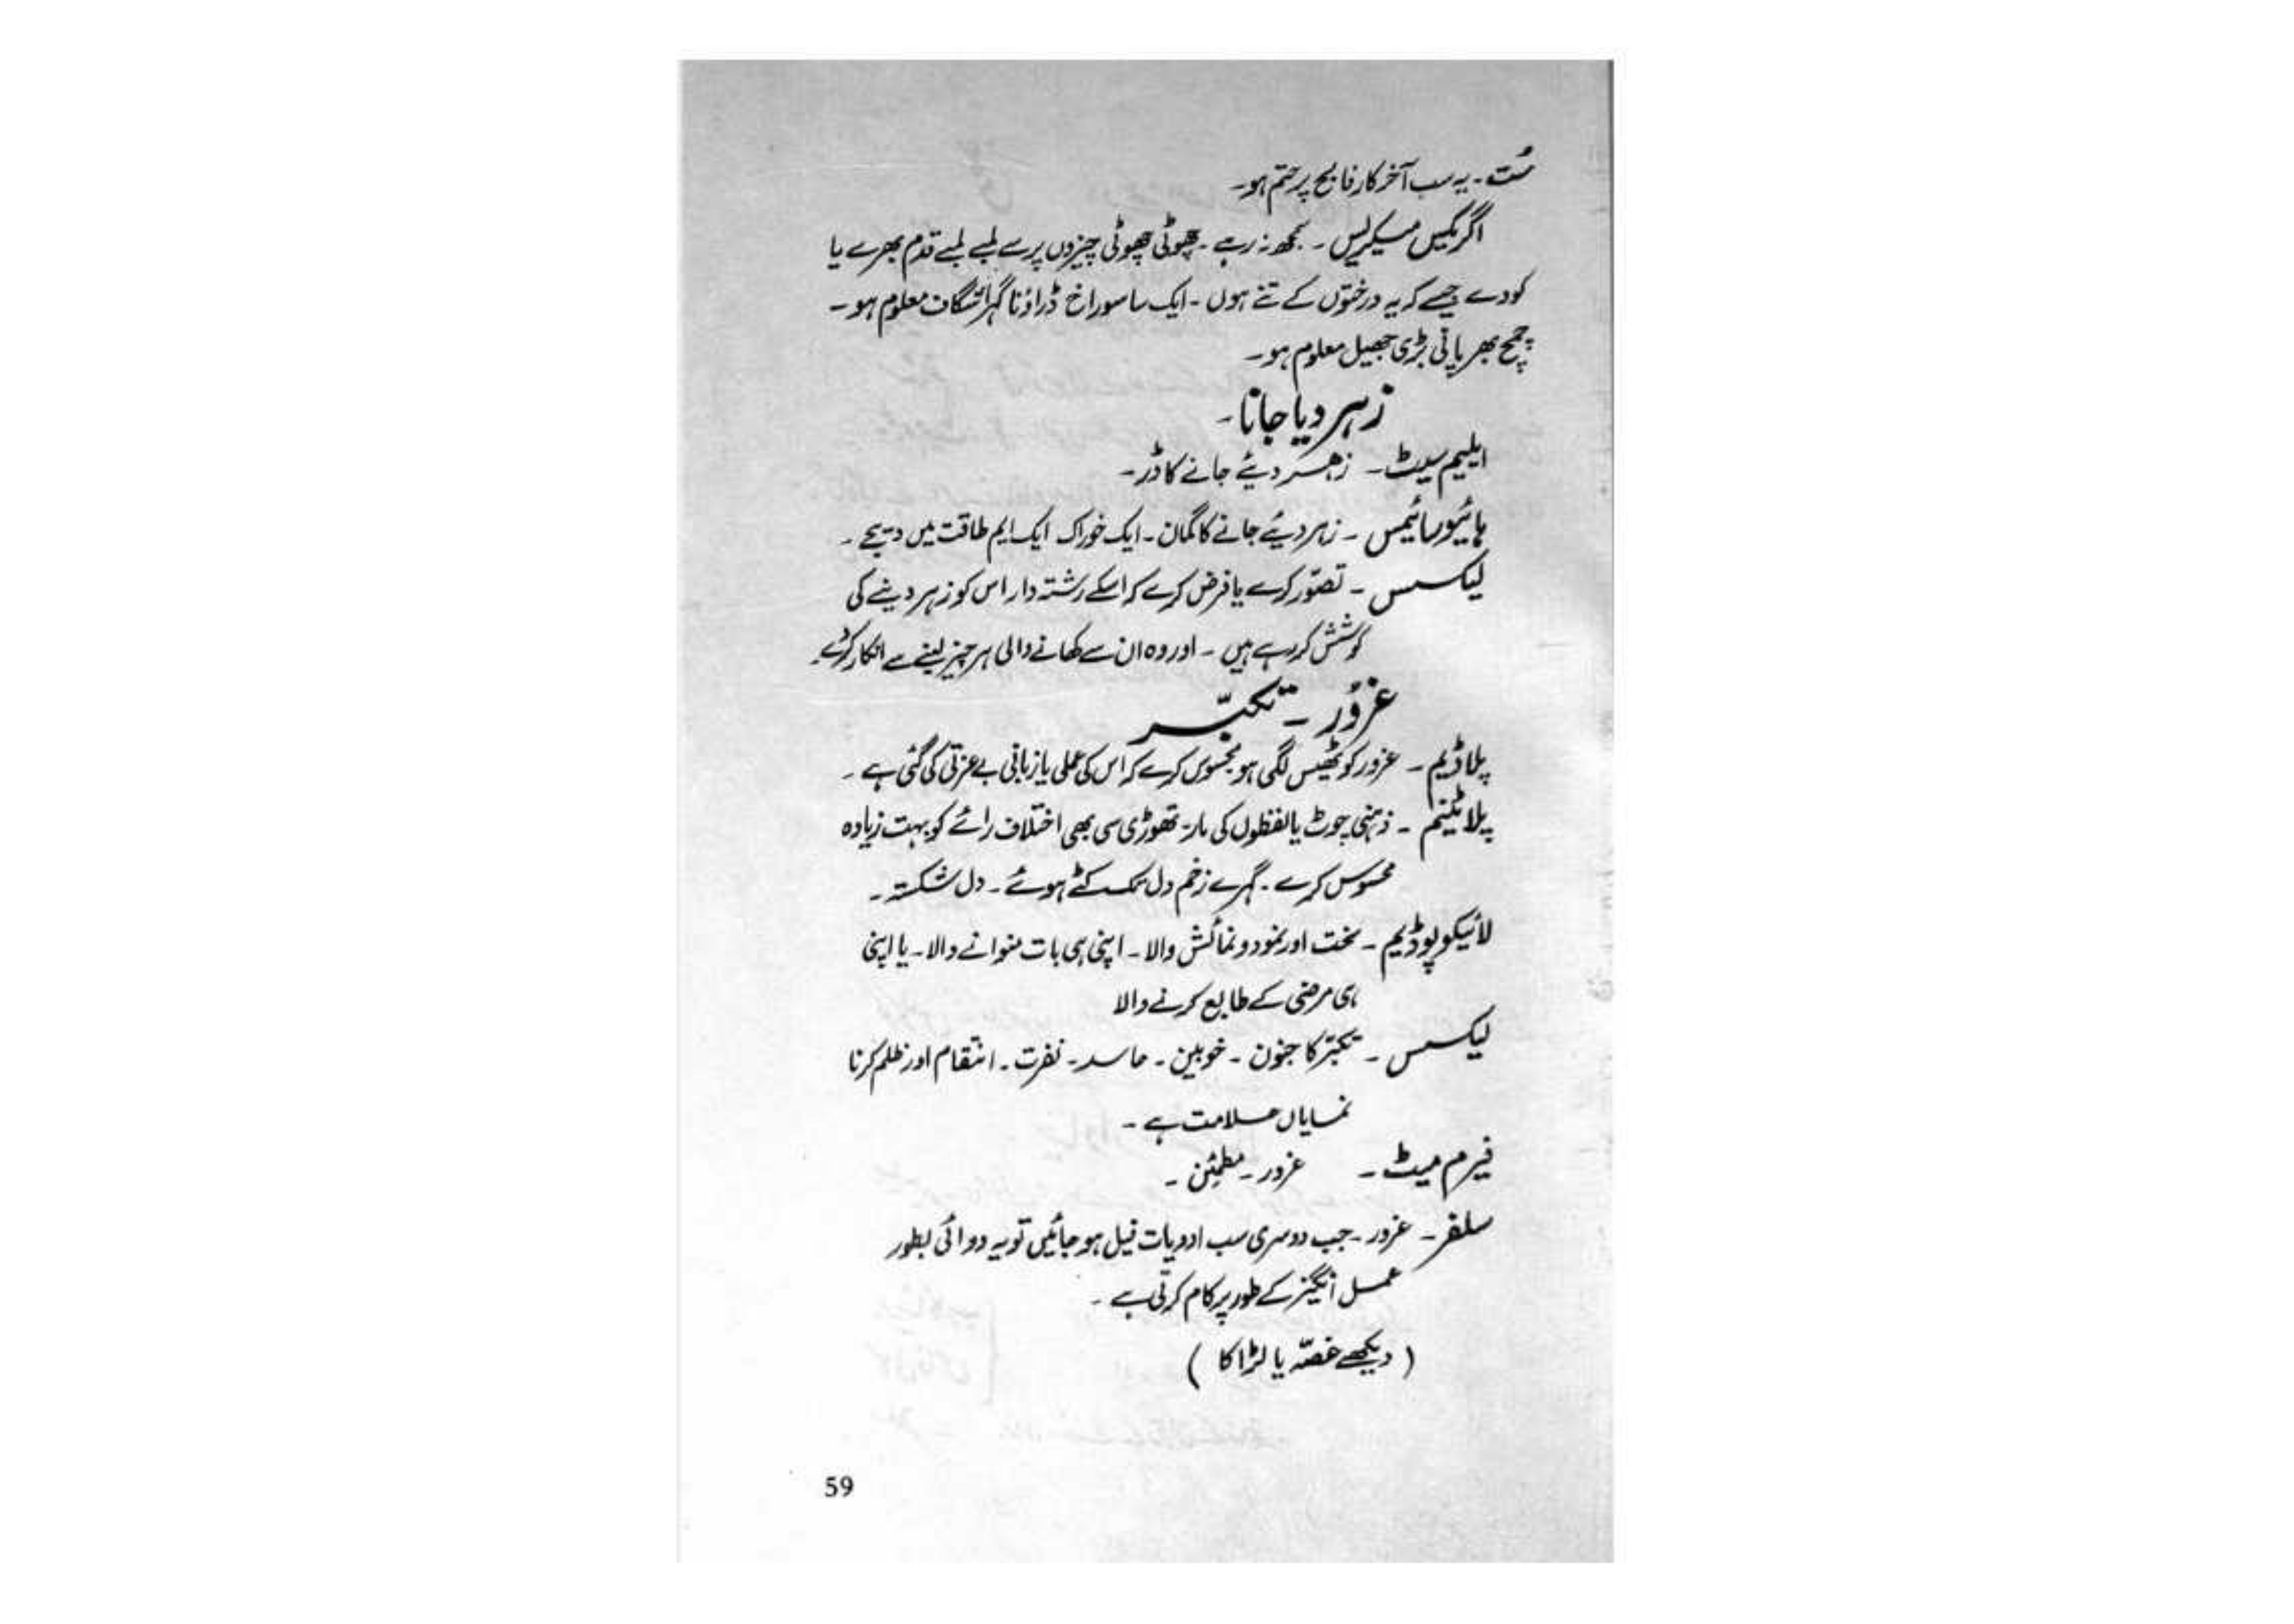 سُست۔ یہ سب آخر کار فالج پر ختم ہو۔
اگریکس مسکیریس۔ سمجھ نہ رہے۔ چھوٹی چھوٹی چیزوں پر سے لمبے لمبے قدم بھرے یا
کودے جیسے کہ یہ درختوں کے تنے ہوں۔ ایک سا سوراخ ڈراؤنا گہرا شگاف معلوم ہو۔
چمچ بھر پانی بڑی جھیل معلوم ہو۔
زہر دیا جانا۔
ایلیم سیٹ۔ زہر دیئے جانے کا ڈر۔
ہائیوسائیمس۔ زہر دیئے جانے کا گمان۔ ایک خوراک ایک ایم طاقت میں دیجے۔
لیکسس۔ تصوّر کرے یا فرض کرے کہ اسکے رشتہ دار اس کو زہر دینے کی
کوشش کر رہے ہیں۔ اور وہ ان سے کھانے والی ہر چیز لینے سے انکار کر دے۔
غرُور۔ تکبّر
پلاڈیم۔ غرور کو ٹھیس لگی ہو محسوس کرے کہ اس کی عملی یا زبانی بے عزتی کی گئی ہے۔
پلاٹینم۔ ذہنی چوٹ یا لفظوں کی مار۔ تھوڑی سی بھی اختلاف رائے کو بہت زیادہ
محسوس کرے۔ گہرے زخم دل تک کٹے ہوئے۔ دل شکستہ۔
لائیکوپوڈیم۔ سخت اور نمود و نمائش والا۔ اپنی ہی بات منوانے والا۔ یا اپنی
ہی مرضی کے طابع کرنے والا
لیکسس۔ تکبّر کا جنون۔ خوبین۔ حاسد۔ نفرت۔ انتقام اور ظلم کرنا
نمایاں علامت ہے۔
فیرم میٹ۔ غرور۔ مطمئن۔
سلفر۔ غرور۔ جب دوسری سب ادویات فیل ہو جائیں تو یہ دوائی بطور
عمل انگیز کے طور پر کام کرتی ہے۔
(دیکھے غصّہ یا لڑاکا)
59